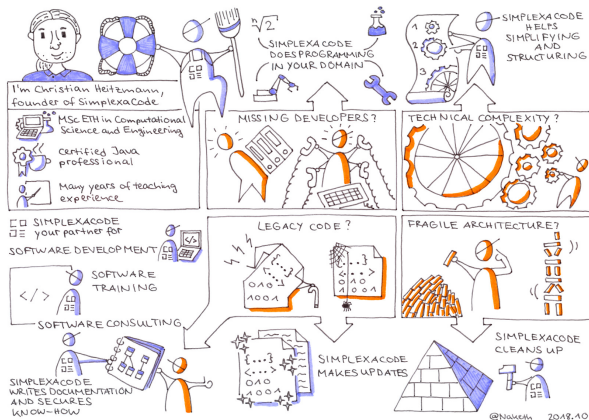 I'm Christian Heitzmann,
founder of SimplexaCode
MSc ETH in Computational
Science and Engineering
certified Java
professional
Many years of teaching
experience
SIMPLEXACODE
your partner for
SOFTWARE DEVELOPMENT
</>
SOFTWARE
TRAINING
</>
SOFTWARE CONSULTING
SIMPLEXACODE
WRITES DOCUMENTATION
AND SECURES
KNOW-HOW
n√2
SIMPLEXACODE
DOES PROGRAMMING
IN YOUR DOMAIN
MISSING DEVELOPERS?
1
2
3
SIMPLEXACODE
HELPS
SIMPLIFYING
AND
STRUCTURING
TECHNICAL COMPLEXITY?
LEGACY CODE?
FRAGILE ARCHITECTURE?
{...}
<...>
010
1001
SIMPLEXACODE
MAKES UPDATES
SIMPLEXACODE
CLEANS UP
@Naketh 2018.10